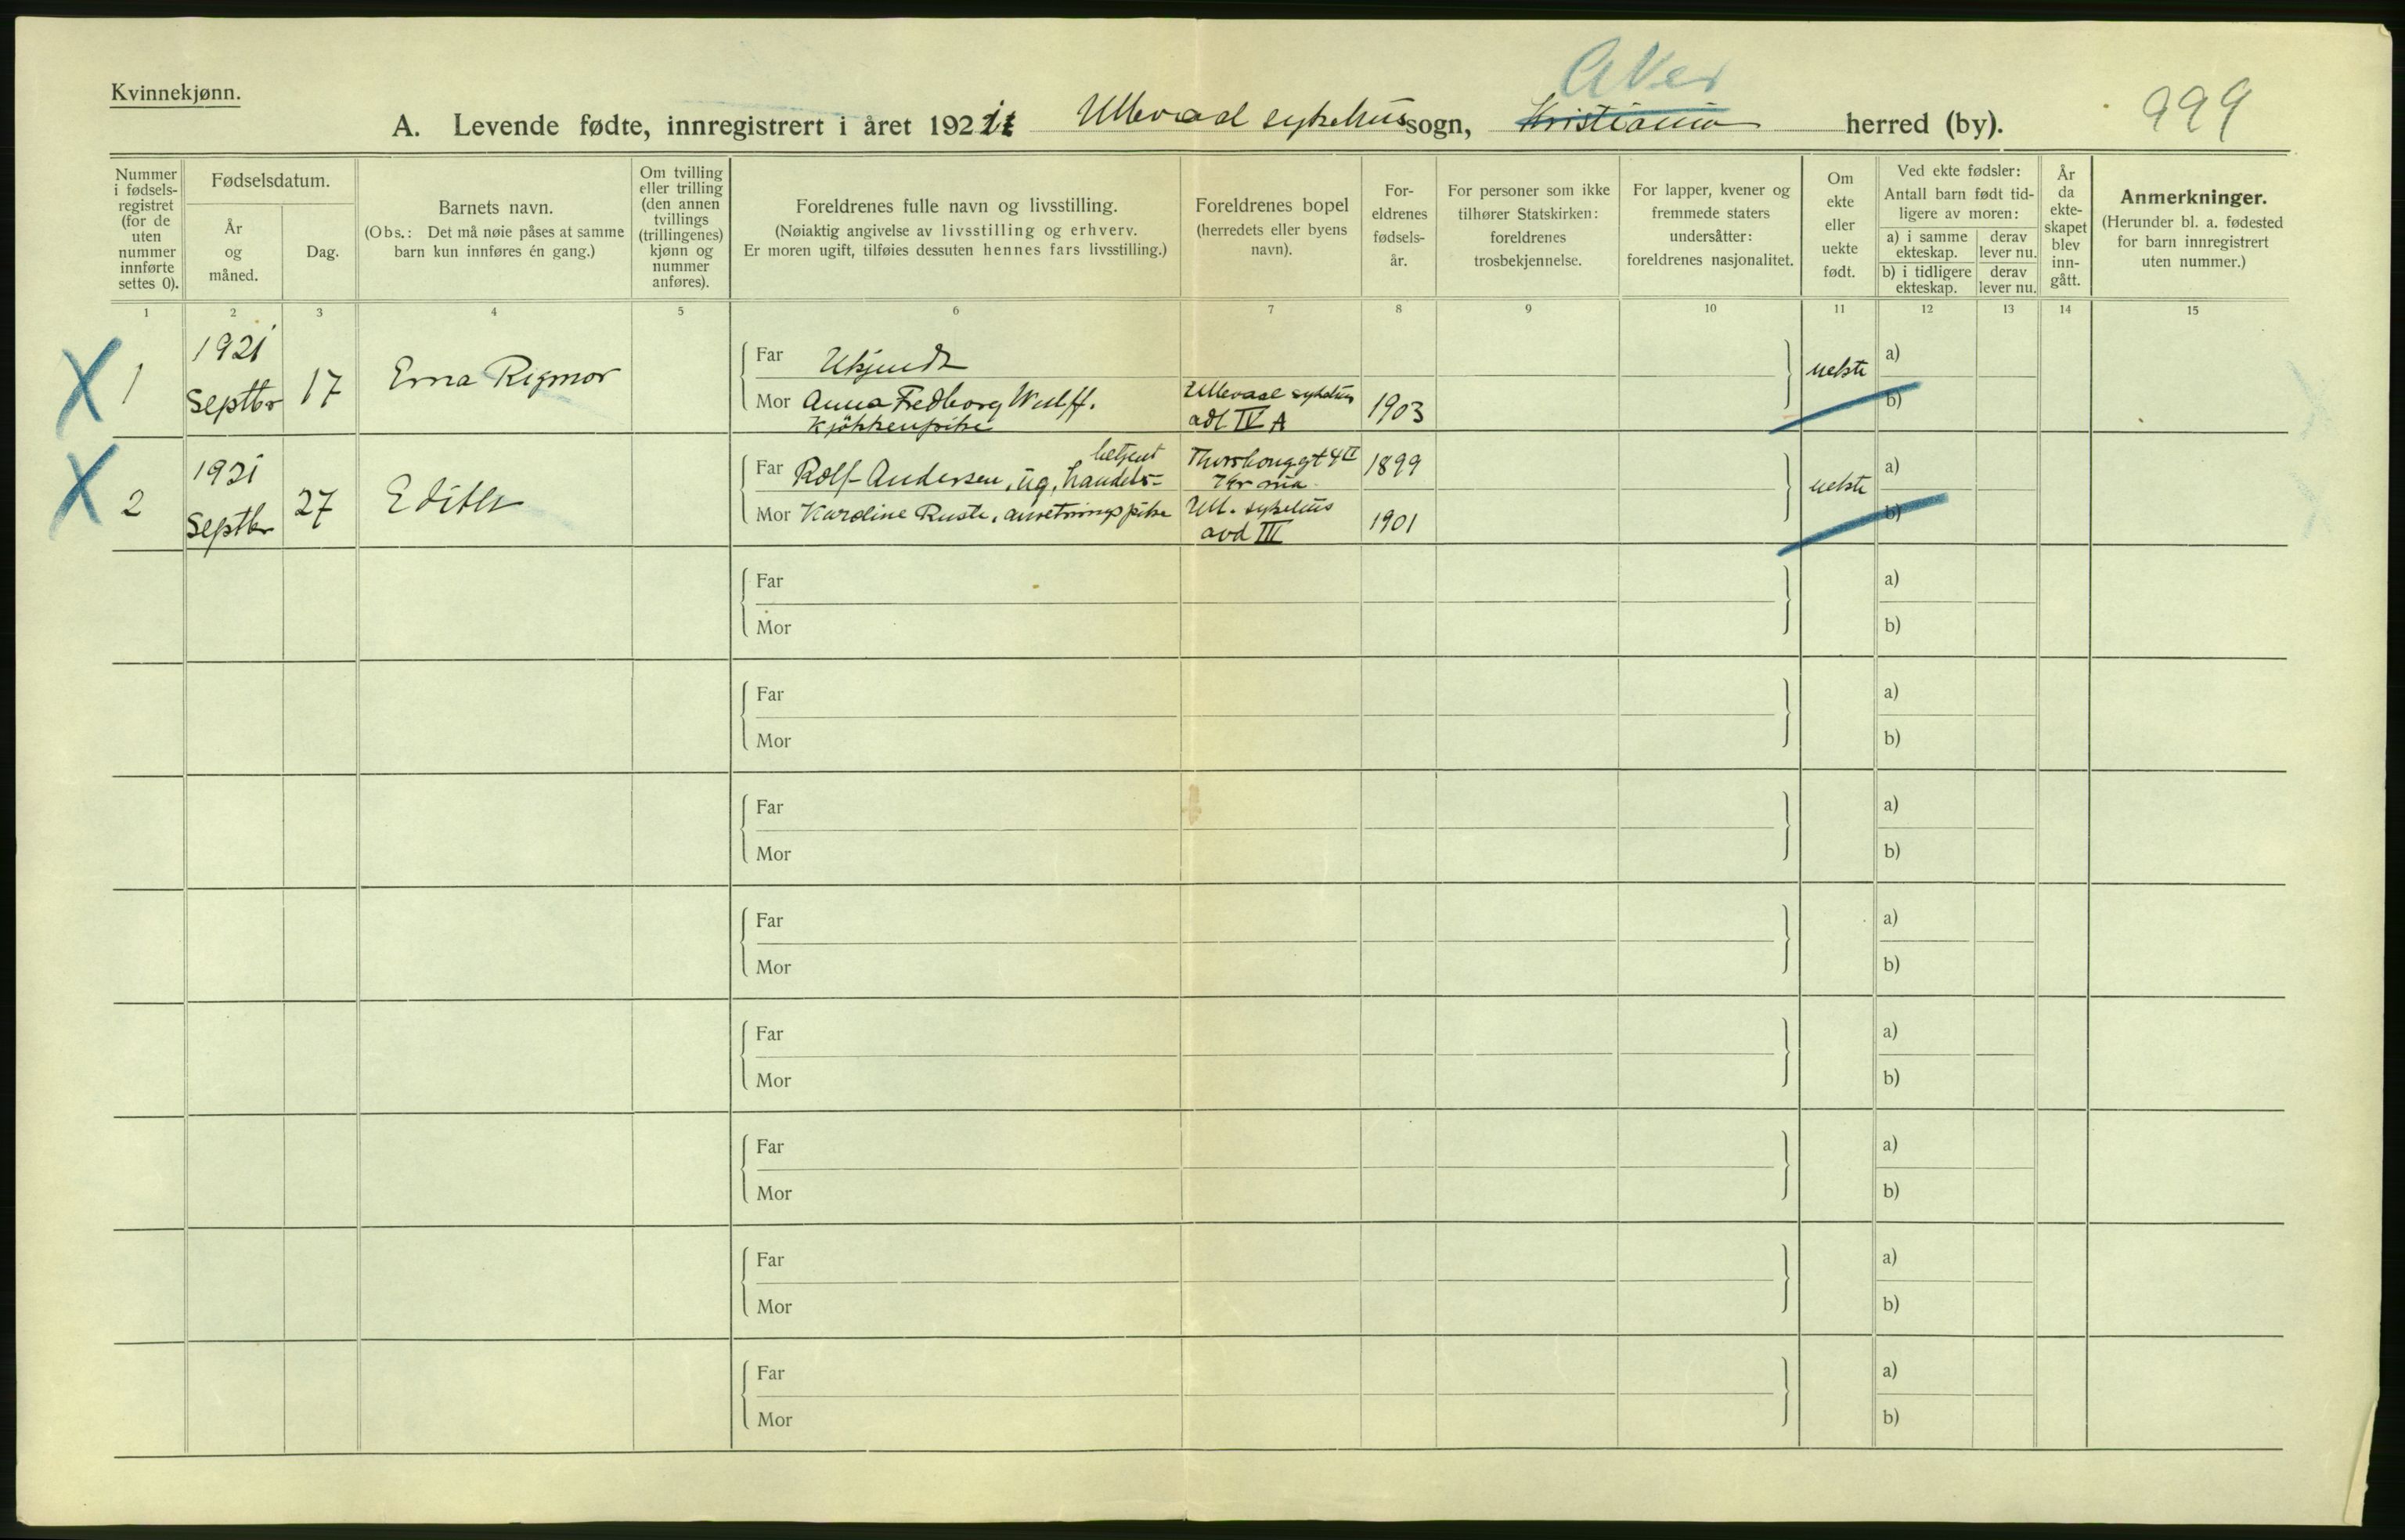 Kvinnekjønn.
Aker
A. Levende fødte, innregistrert i året 1921 Ullevaal sykehus sogn, Kristiania herred (by).
999
Nummer i fødsels-registret (for de uten nummer innførte settes 0).
Fødselsdatum.
År og måned.
Dag.
Barnets navn.
(Obs.: Det må nøie påses at samme barn kun innføres én gang.)
Om tvilling eller trilling (den annen tvillings (trillingenes) kjønn og nummer anføres).
Foreldrenes fulle navn og livsstilling.
(Nøiaktig angivelse av livsstilling og erhverv.
Er moren ugift, tilføies dessuten hennes fars livsstilling.)
Foreldrenes bopel
(herredets eller byens navn).
For-eldrenes fødsels-år.
For personer som ikke tilhører Statskirken: foreldrenes trosbekjennelse.
For lapper, kvener og fremmede staters undersåtter: foreldrenes nasjonalitet.
Om ekte eller uekte født.
Ved ekte fødsler:
Antall barn født tid-ligere av moren:
a) i samme ekteskap.
derav lever nu.
b) i tidligere ekteskap.
derav lever nu.
År da ekte-skapet blev inn-gått.
Anmerkninger.
(Herunder bl. a. fødested for barn innregistrert uten nummer.)
1 2 3 4 5 6 7 8 9 10 11 12 13 14 15
X 1 1921 Septbr 17 Erna Rigmor
Far Ukjendt
Mor Anna Fredborg Wulff. Kjökkenpike
Ullevaal sykehus adl IV A
1903
uekte
a)
b)
X 2 1921 Septbr 27 Edith
Far Rolf Andersen, ug, handels-betjent
Thorshouggt 4 II Kr ania
1899
Mor Karoline Ruste, anretningspike
Ull. sykehus avd III
1901
uekte
a)
b)
Far
Mor
a)
b)
Far
Mor
a)
b)
Far
Mor
a)
b)
Far
Mor
a)
b)
Far
Mor
a)
b)
Far
Mor
a)
b)
Far
Mor
a)
b)
Far
Mor
a)
b)